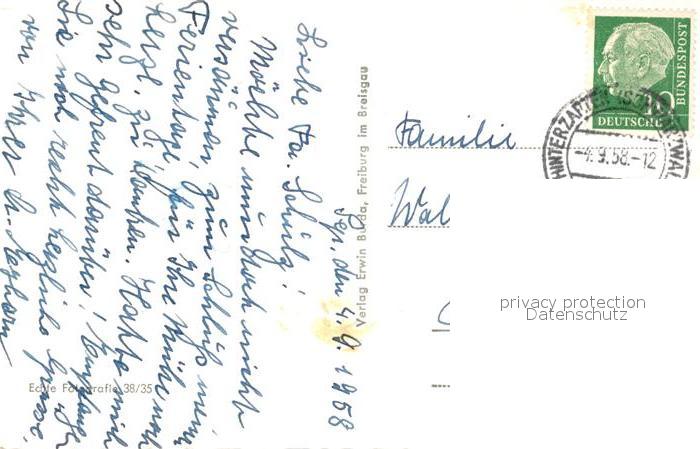 Hgn., den 4.9.1958
Liebe Fa. Schulz!
Möchte mich doch nicht
versäumen zum Schluß meiner
Ferientage für Ihre Mühe
herzl. zu danken. Hatte mich
sehr gefreut darüber! Empfangen
Sie noch recht herzliche Grüsse,
von Ihrer
Echte Fotografie 38/35
Verlag Erwin Burda, Freiburg im Breisgau
DEUTSCHE
BUNDESPOST
HINTERZARTEN
-4.9.58.-12
Familie
Wal
privacy protection
Datenschutz